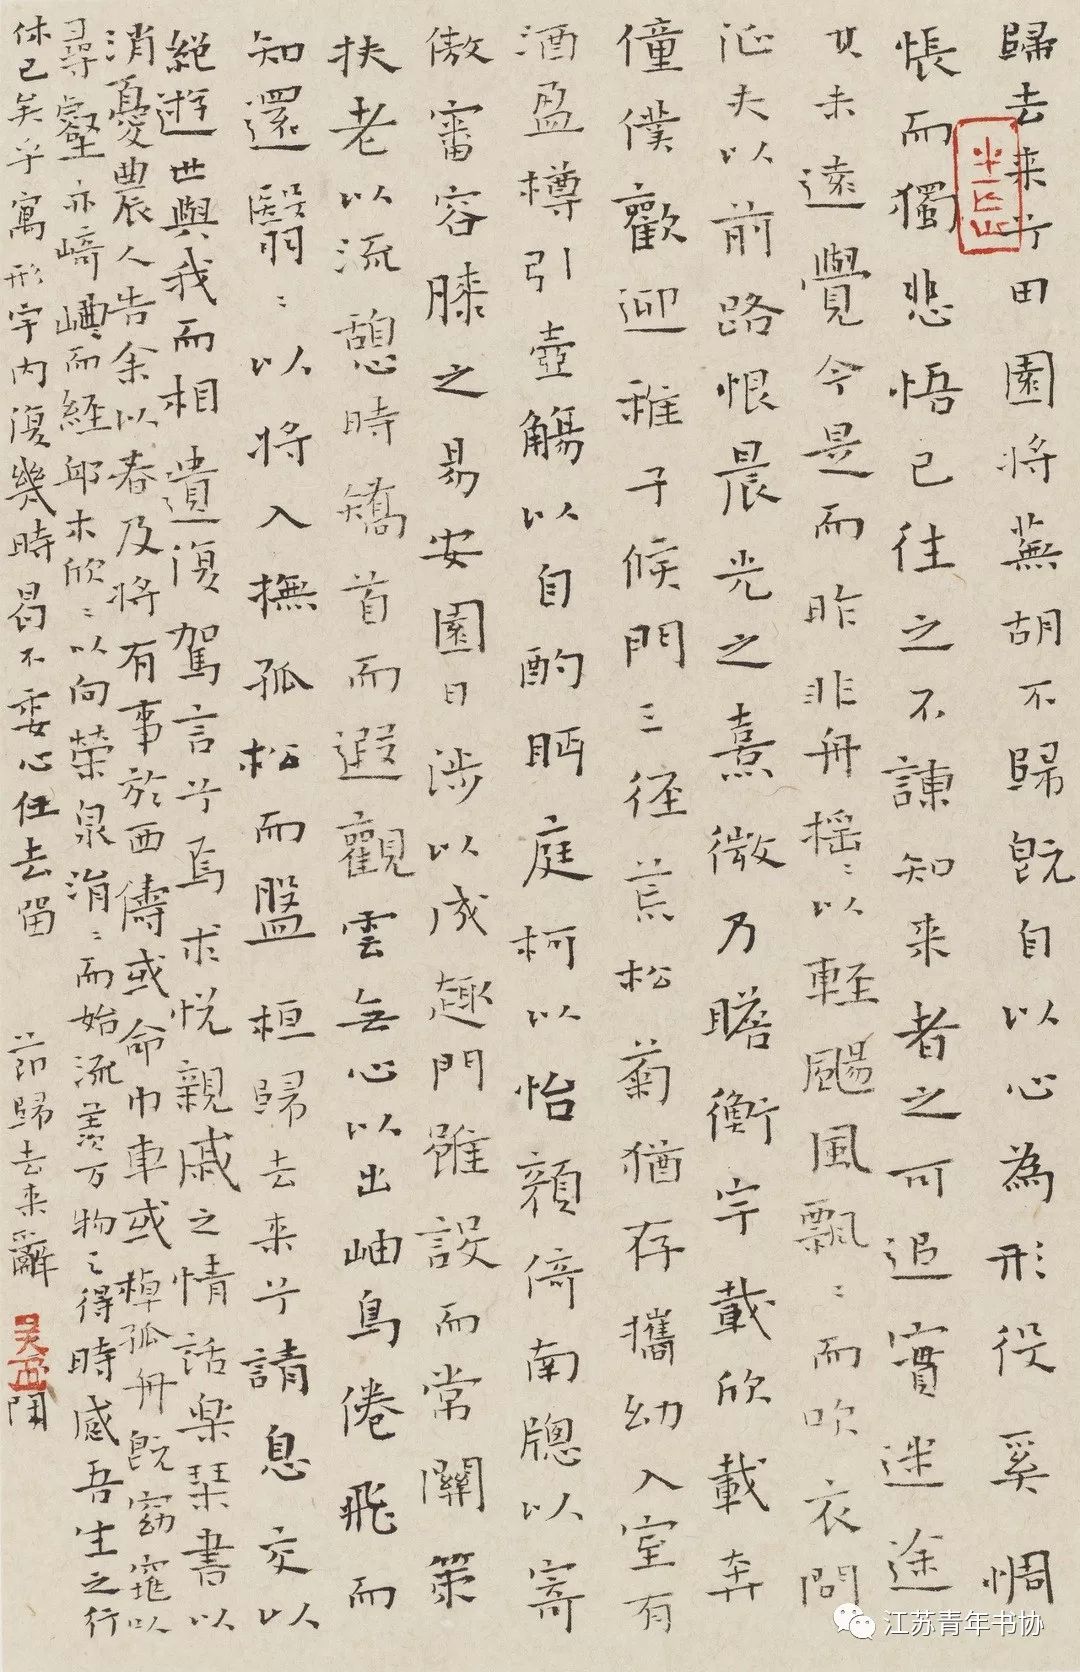 歸去来兮田園将蕪胡不歸既自以心為形役奚惆
悵而獨悲悟已往之不諫知来者之可追實迷途
其未遠覺今是而昨非舟摇〻以輕颺風飄〻而吹衣問
征夫以前路恨晨光之熹微乃瞻衡宇載欣載奔
僮僕歡迎稚子候門三径荒松菊猶存攜幼入室有
酒盈樽引壺觴以自酌眄庭柯以怡顔倚南牎以寄
傲審容膝之易安園日涉以成趣門雖設而常關策
扶老以流憩時矯首而遐觀雲無心以出岫鳥倦飛而
知還翳〻以将入撫孤松而盤桓歸去来兮請息交以
絕遊世與我而相遺復駕言兮焉求悅親戚之情話樂琴書以
消憂農人告余以春及将有事於西疇或命巾車或棹孤舟既窈窕以
尋壑亦崎嶇而経邱木欣〻以向荣泉涓〻而始流羨万物之得時感吾生之行
休已矣乎寓形宇内復幾時曷不委心任去留 節歸去来辭
江苏青年书协